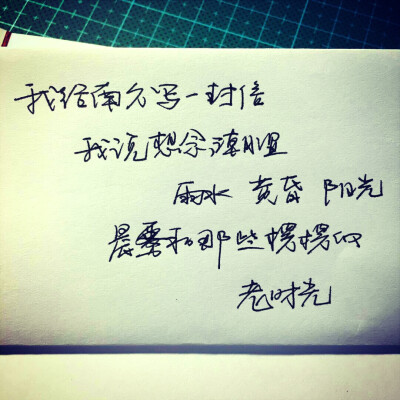 我给南方写一封信
我说想念
雨水 黄昏 阳光
晨雾和那些楞楞的
老时光